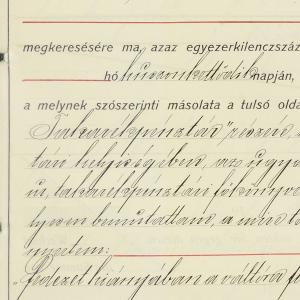 megkeresésére ma, azaz egyezerkilenczszáz
hó huszonkettődik napján,
a melynek szószerinti másolata a tulsó olda
Takarékpénztár" részére,
tári helyiségében, az ugyve
ur, takarékpénztári főkönyve
lyesen bemutattam, a mire
nyertem:
"fedezet hiányában a váltóra